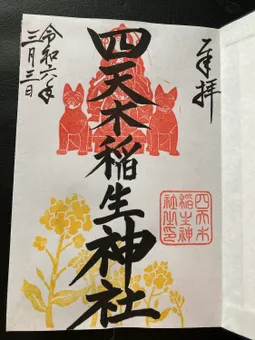 奉拝
四天木稲生神社
令和六年
三月三日
四天木
稲生神
社之印